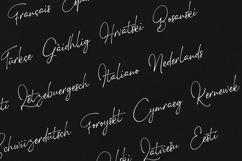 Français
Türkçe Gàidhlig Hrvatski Bosanski
Lëtzebuergesch Italiano Nederlands
Schwizerdütsch Føroyskt Cymraeg Kernewek
Latviešu Eesti